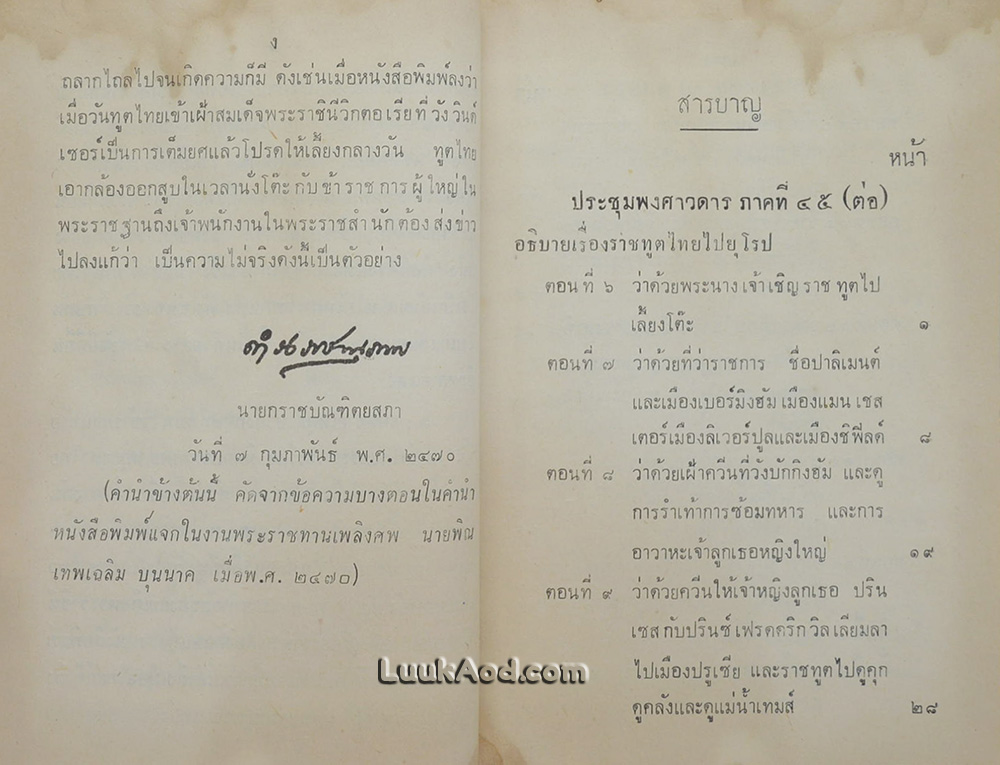 ง
ถลากไถลไปจนเกิดความก็มี ดังเช่นเมื่อหนังสือพิมพ์ลงว่า
เมื่อวันทูตไทยเข้าเฝ้าสมเด็จพระราชินีวิกตอเรียที่วังวินด์
เซอร์เป็นการเต็มยศแล้วโปรดให้เลี้ยงกลางวัน ทูตไทย
เอากล้องออกสูบในเวลานั่งโต๊ะกับข้าราชการผู้ใหญ่ใน
พระราชฐานถึงเจ้าพนักงานในพระราชสำนักต้องส่งข่าว
ไปลงแก้ว่า เป็นความไม่จริงดังนี้เป็นตัวอย่าง
ดำรงราชานุภาพ
นายกราชบัณฑิตยสภา
วันที่ ๗ กุมภาพันธ์ พ.ศ. ๒๔๗๐
(คำนำข้างต้นนี้ คัดจากข้อความบางตอนในคำนำ
หนังสือพิมพ์แจกในงานพระราชทานเพลิงศพ นายพิณ
เทพเฉลิม บุนนาค เมื่อพ.ศ. ๒๔๗๐)
สารบาญ
หน้า
ประชุมพงศาวดาร ภาคที่ ๔๕ (ต่อ)
อธิบายเรื่องราชทูตไทยไปยุโรป
ตอนที่ ๖ ว่าด้วยพระนางเจ้าเชิญราชทูตไป
เลี้ยงโต๊ะ ๑
ตอนที่ ๗ ว่าด้วยที่ว่าราชการ ชื่อปาลิเมนต์
และเมืองเบอร์มิงฮัม เมืองแมนเชส
เตอร์เมืองลิเวอร์ปูลและเมืองชิฟีลด์ ๘
ตอนที่ ๘ ว่าด้วยเฝ้าควีนที่วังบักกิงฮัม และดู
การรำเท้าการซ้อมทหาร และการ
อาวาหะเจ้าลูกเธอหญิงใหญ่ ๑๙
ตอนที่ ๙ ว่าด้วยควีนให้เจ้าหญิงลูกเธอ ปริน
เซสกับปรินซ์เฟรดดริกวิลเลียมลา
ไปเมืองปรูเซีย และราชทูตไปดูคุก
ดูคลังและดูแม่น้ำเทมส์ ๒๘
LuukAod.com